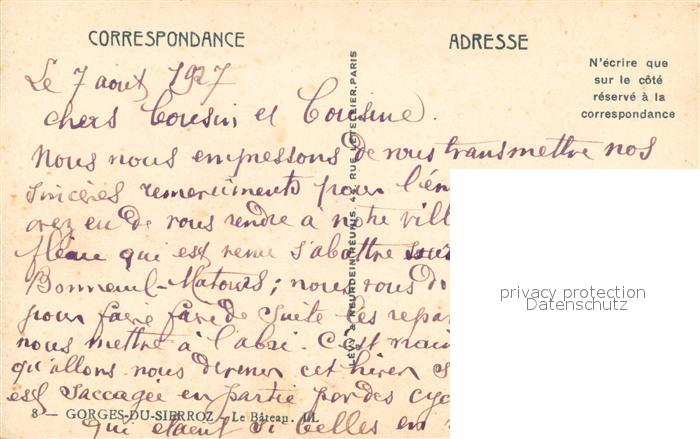 CORRESPONDANCE
ADRESSE
N'écrire que
sur le côté
réservé à la
correspondance
Le 7 aout 1927
chers Cousin et Cousine.
Nous nous empressons de vous transmettre nos
sincères remerciments pour l'én
avez eu de vous rendre à notre vill
fléau qui est venu s'abattre sur
Bonneuil-Matours; nous vous
pour faire faire de suite les repa
nous mettre à l'abri. C'est
qu'allons nous devenir cet hiver
est saccagée en partie par des cyc
qui étaent si belles en
8 — GORGES-DU-SIERROZ – Le Bâteau. LL
LÉVY & NEURDEIN RÉUNIS, RUE LETELLIER, PARIS
privacy protection
Datenschutz